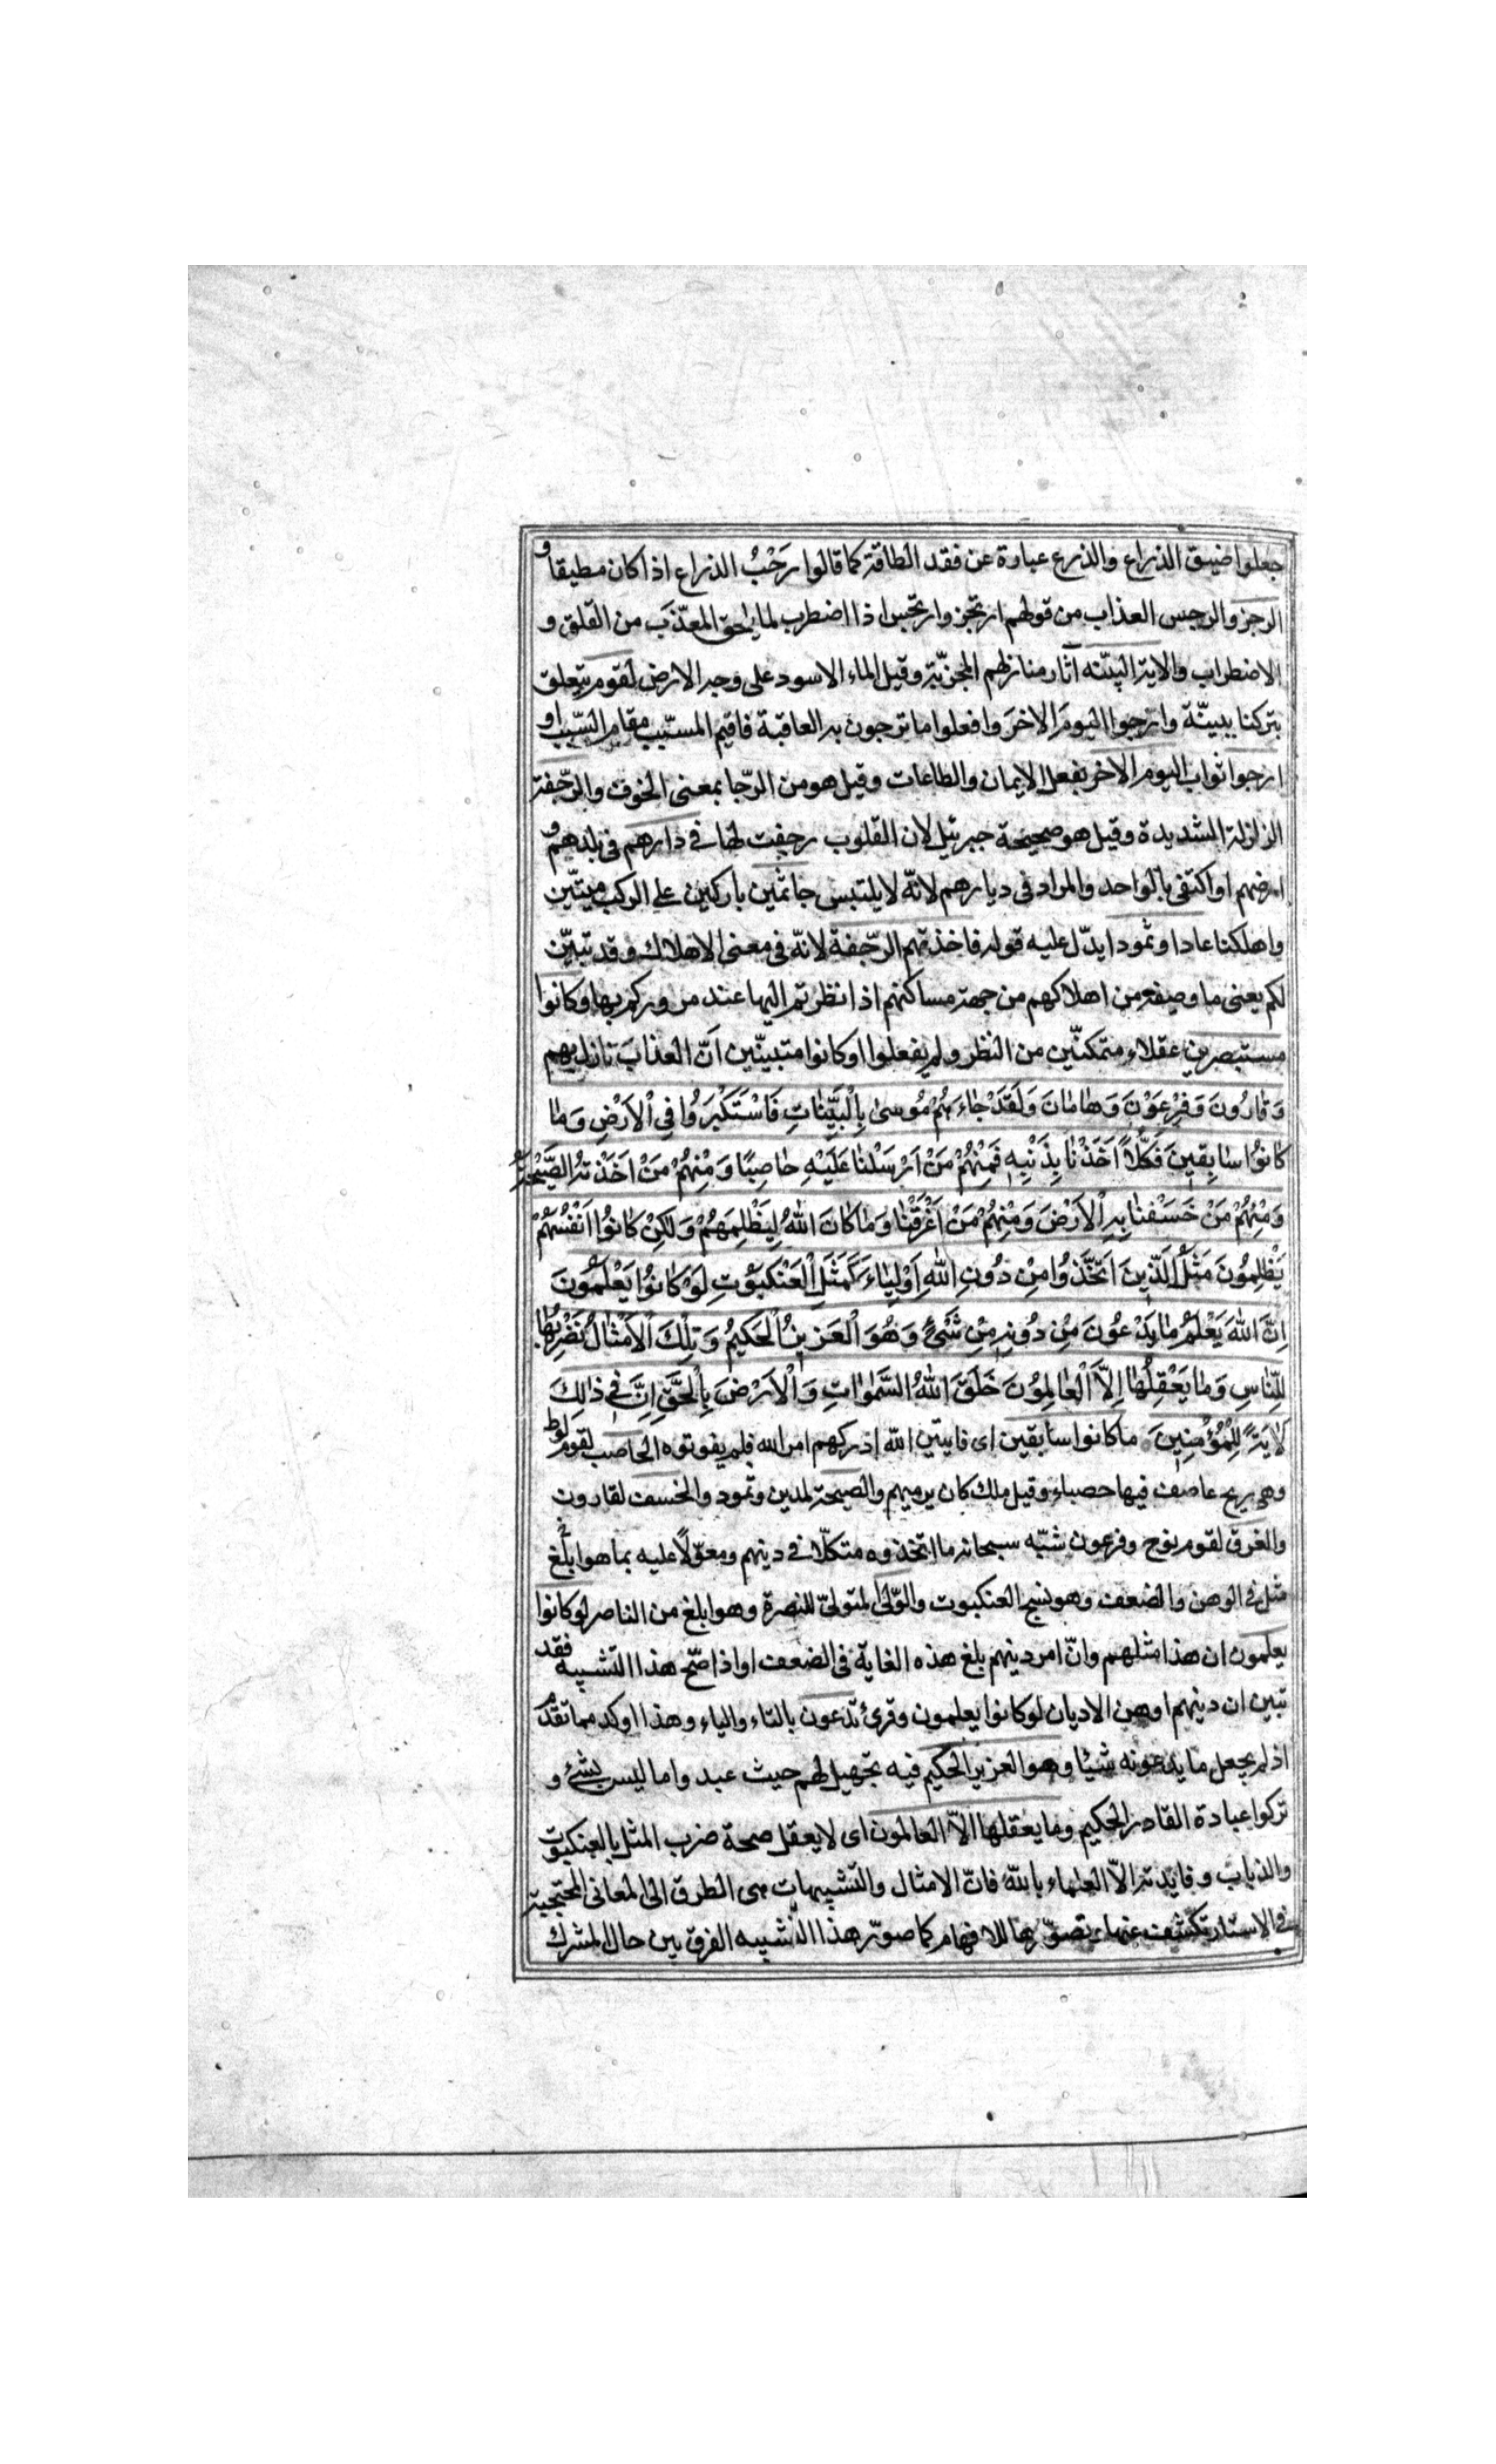 جعلوا ضيق الذراع والذرع عبارة عن فقد الطاقة كما قالوا رَحْبُ الذراع اذا كان مطيقا و
الرجز والرجس العذاب من قولهم ارتجز وارتجس اذا اضطرب لما يلحق المعذّب من القلق و
الاضطراب والاية البيّنه آثار منازلهم الخربة وقيل الماء الاسود على وجه الارض لقوم يتعلق
بتركنا ببيّنة وارجوا اليومَ الاخرَ وافعلوا ما ترجون به العاقبة فاقيم المسبّب مقام السّبب او
ارجوا ثواب اليوم الاخر بفعل الايمان والطاعات وقيل هو من الرّجا بمعنى الخوف والرّجفة
الزلزلة الشديدة وقيل هو صحيحة جبرئيل لان القلوب رجفت لها فى دارهم فى بلدهم و
ارضهم او اكتفى بالواحد والمراد فى ديارهم لانّه لا يلتبس جاثمين باركين على الركب ميّتين
واهلكنا عادا وثمودا يدلّ عليه قوله فاخذتهم الرّجفة لانّه فى معنى الاهلاك وقد تبيّن
لكم يعنى ما وصفه من اهلاكهم من جهة مساكنهم اذا نظرتم اليها عند مروركم بها وكانوا
مستبصرين عقلاء متمكنّين من النظر ولم يفعلوا او كانوا متبينّين اَنّ العذاب نازل بهم
وَقَارُونَ وَفِرْعَوْنَ وَهَامَانَ وَلَقَدْ جَاءَهُمْ مُوسىٰ بِالْبَيِّنَاتِ فَاسْتَكْبَرُوا فِي الْاَرْضِ وَمَا
كَانُوا سَابِقِينَ فَكُلًّا اَخَذْنَا بِذَنْبِهِ فَمِنْهُمْ مَنْ اَرْسَلْنَا عَلَيْهِ حَاصِبًا وَمِنْهُمْ مَنْ اَخَذَتْهُ الصَّيْحَةُ
وَمِنْهُمْ مَنْ خَسَفْنَا بِهِ الْاَرْضَ وَمِنْهُمْ مَنْ اَغْرَقْنَا وَمَا كَانَ اللهُ لِيَظْلِمَهُمْ وَلٰكِنْ كَانُوا اَنْفُسَهُمْ
يَظْلِمُونَ مَثَلُ الَّذِينَ اتَّخَذُوا مِنْ دُونِ اللهِ اَوْلِيَاءَ كَمَثَلِ الْعَنْكَبُوتِ لَوْ كَانُوا يَعْلَمُونَ
اِنَّ اللهَ يَعْلَمُ مَا يَدْعُونَ مِنْ دُونِهِ مِنْ شَىْءٍ وَهُوَ الْعَزِيزُ الْحَكِيمُ وَتِلْكَ الْاَمْثَالُ نَضْرِبُهَا
لِلنَّاسِ وَمَا يَعْقِلُهَا اِلَّا الْعَالِمُونَ خَلَقَ اللهُ السَّمٰوَاتِ وَالْاَرْضَ بِالْحَقِّ اِنَّ فِى ذٰلِكَ
لَاٰيَةً لِلْمُؤْمِنِينَ ما كانوا سابقين اى فايتين الله ادركهم امر الله فلم يفوتوه الحاصب لقوم لوط
وهى ريح عاصف فيها حصباء وقيل ملك كان يرميهم والصيحة لمدين وثمود والخسف لقارون
والغرق لقوم نوح وفرعون شبّه سبحانه ما اتخذوه متكلّا فى دينهم ومعوّلًا عليه بما هو ابلغ
مثل فى الوهن والضعف وهو نسج العنكبوت والولىّ المتولىّ للنصرة وهو ابلغ من الناصر لو كانوا
يعلمون ان هذا مثلهم وانّ امر دينهم بلغ هذه الغاية فى الضعف او اذا صّح هذا التشبيه فقد
تبين ان دينهم اوهن الاديان لو كانوا يعلمون وقرئ تدعون بالتاء والياء وهذا اوكد مما تقدّم
اذ لم يجعل ما يدعونه شيئا وهو العزيز الحكيم فيه تجهيل لهم حيث عبدوا ما ليس بشئ و
تركوا عبادة القادر الحكيم وما يعقلها الاّ العالمون اى لا يعقل صحة ضرب المثل بالعنكبوت
والذباب وفايدته الاّ العلماء بالله فانّ الامثال والتشبيهات هى الطرق الى المعانى المحتجبة
فى الاستار تكشف عنها وتصوّرها للافهام كما صوّر هذا التشبيه الفرق بين حال المشرك